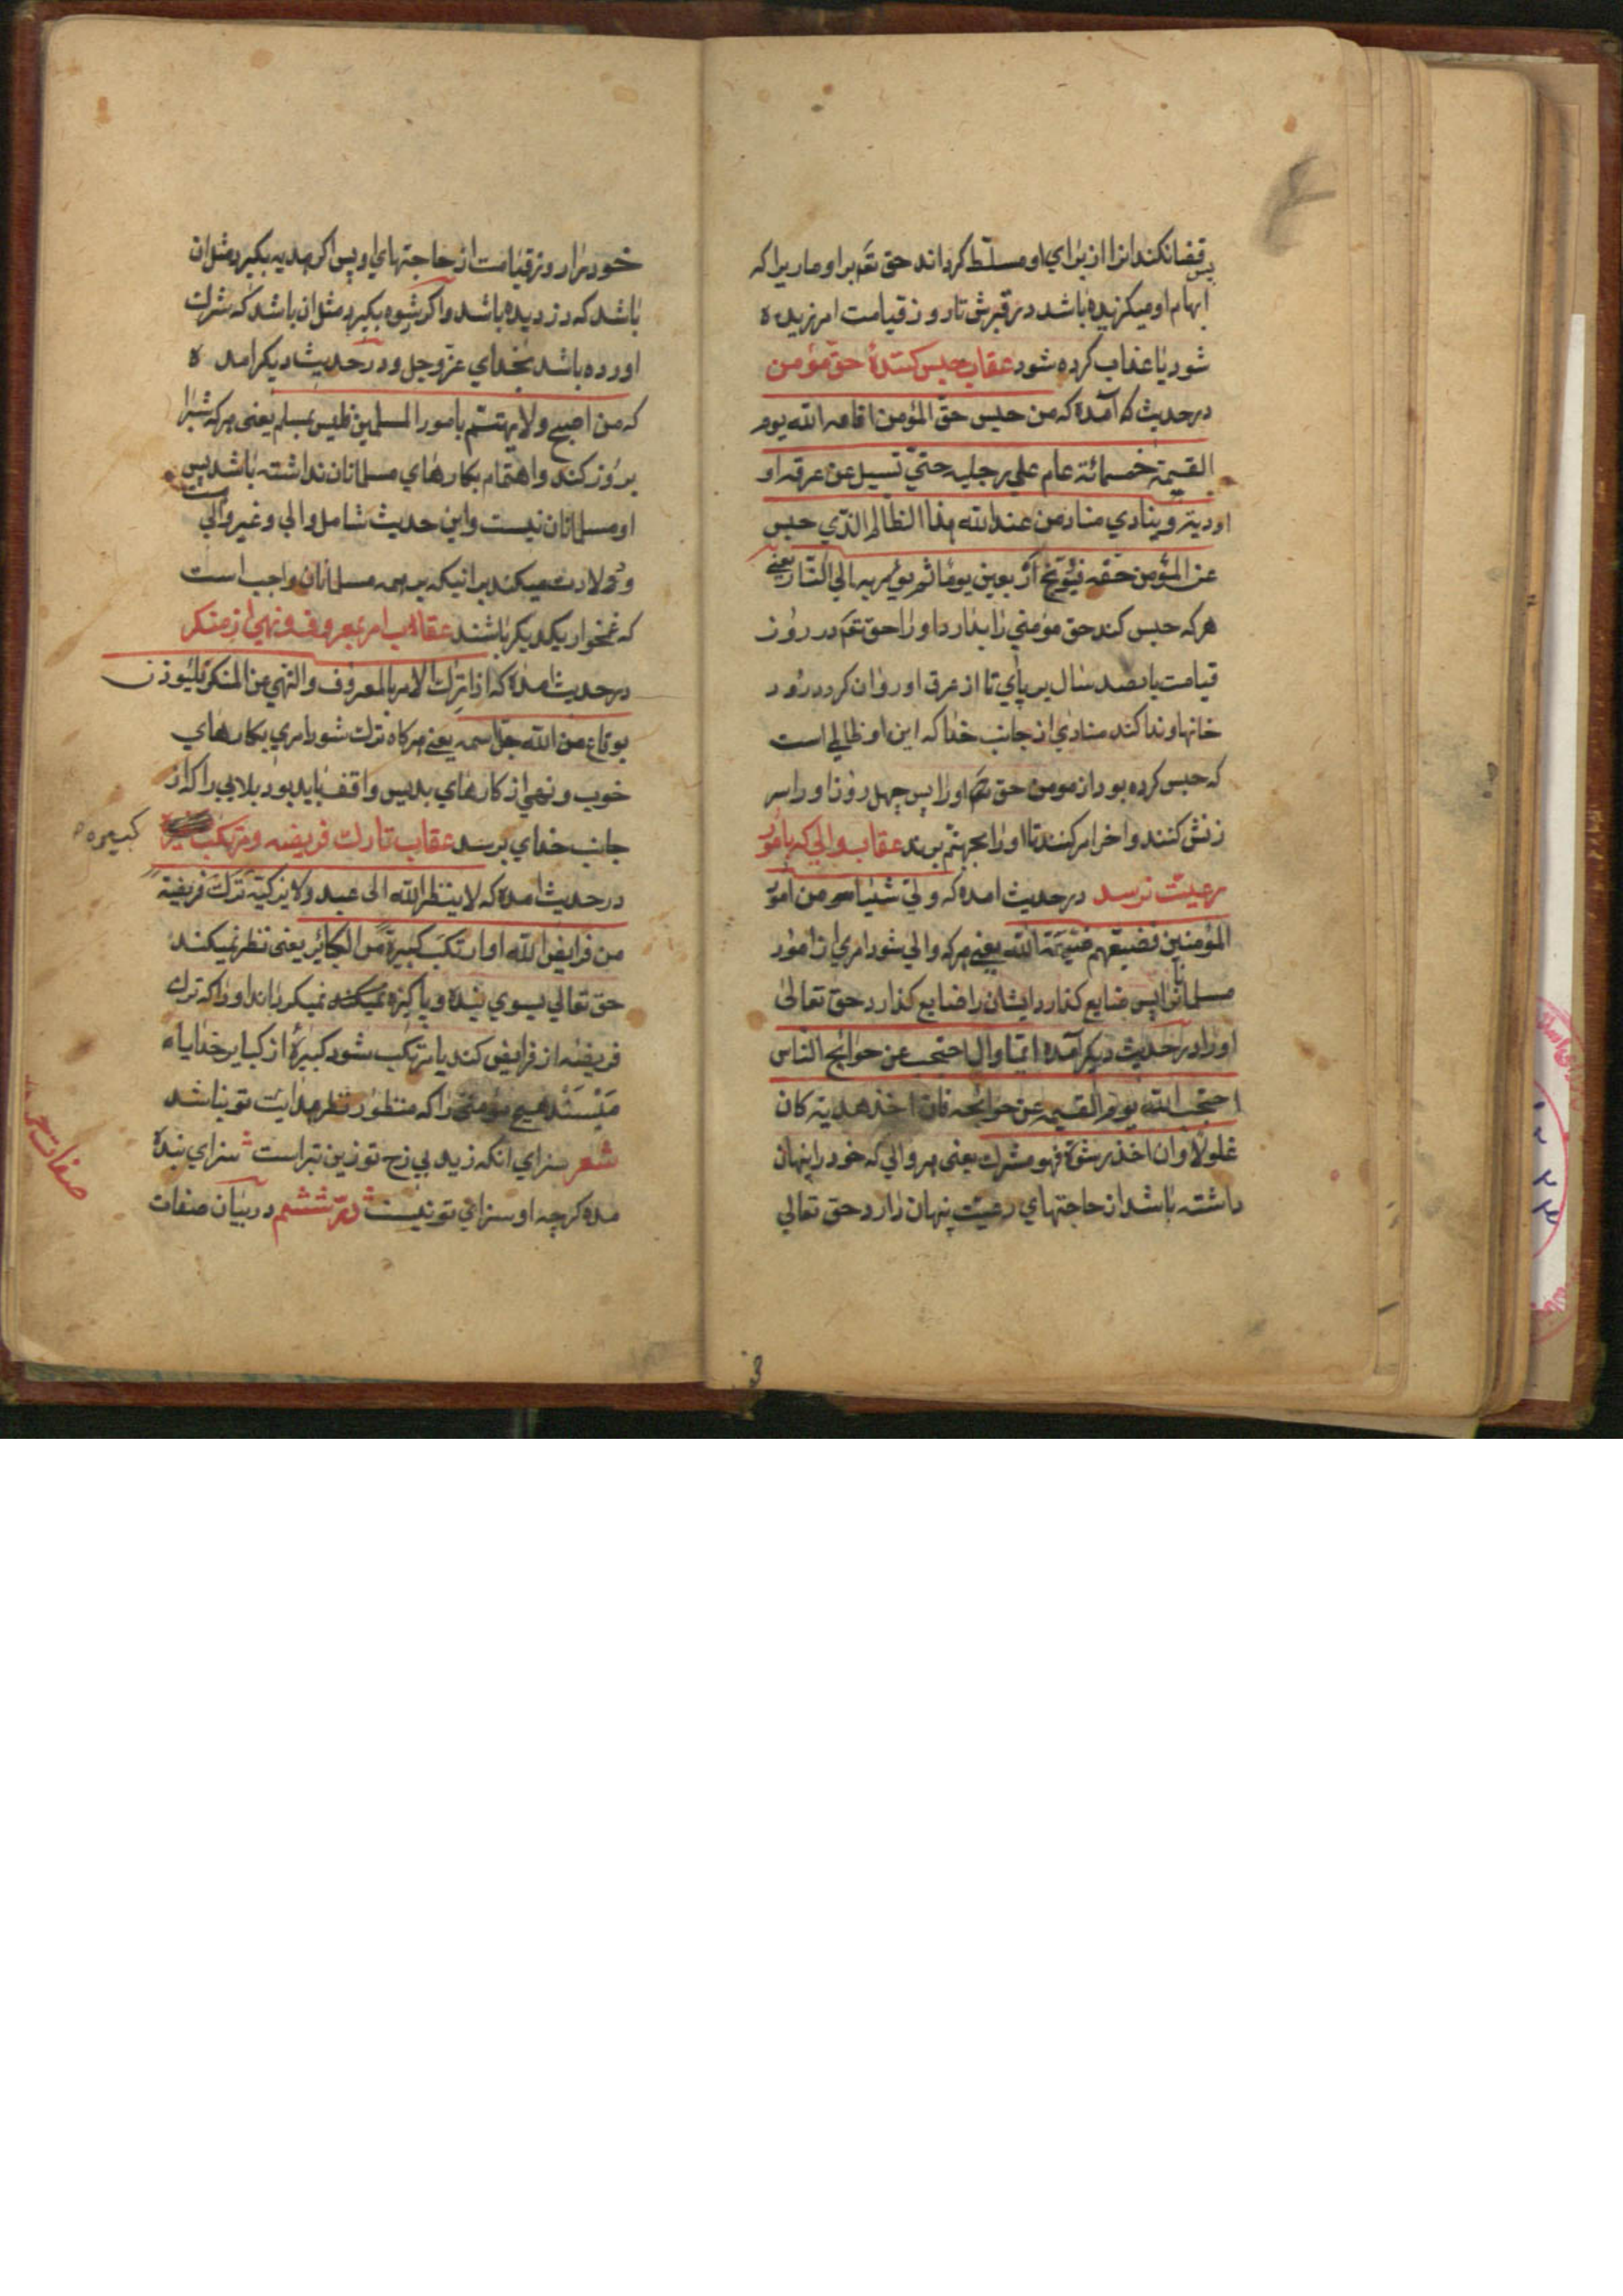 قضا نکند انرا از برای او مسلّط کرداند حق تعم بر او ماریرا که
پس
ابهام او میکزیده باشد در قبرش تا روز قیامت امرزیده
شود یا عذاب کرده شود عقاب حبس کنندهٔ حق مؤمن
در حدیث که آمده که من حبس حقّ المؤمن اقامه الله یوم
القیمة خمسمائة عام علی رجلیه حتیّ تسیل عن عرقه او
اودیة و ینادي مناد من عند الله هذا الظالم الذي حبس
عن المؤمن حقه فیُوبّخ اربعین یومًا ثم یؤمر به الی النّار یعنی
هر که حبس کند حق مؤمنی را بدارد او را حق تعم در روز
قیامت پانصد سال بر پای تا از عرق او روان کردد رود
خانها و ندا کند منادی از جانب خدا که این او ظالم است
که حبس کرده بود از مومن حق او را پس چهل روز او را سر
زنش کنند و اخر امر کنند تا او را بجهنّم برند عقاب والی که بامور
رعیت نرسد در حدیث امده که ولیّ شیئا من امور
المؤمنین فضیعهم ضیّعه الله یعنی هر که والی شود امری از امور
مسلمانانرا پس ضایع کذارد ایشان را ضایع کذارد حق تعالی
او را و در حدیث دیکر آمده ایّما وال احتجب عن حوائج الناس
احتجب الله یوم القیمه عن حوائجه فان اخذ هدیة کان
غلولا و ان اخذ رشوة فهو مشرک یعنی هر والی که خود را پنهان
داشته باشد از حاجتهای رعیت پنهان دارد حق تعالی
خود را روز قیامت از حاجتهای او پس اکر هدیه بکیرد مثل ان
باشد که دزدیده باشد و اکر رشوه بکیرد مثل ان باشد که شرک
اورده باشد بخدای عزّ و جل و در حدیث دیکر امده
که من اصبح و لا یهتم بامور المسلمین فلیس بمسلم یعنی هر که شبرا
بروز کند و اهتمام بکارهای مسلمانان نداشته باشد پس
او مسلمانان نیست و این حدیث شامل والی و غیر والی
است
و دلالت میکند بر انیکه بر همه مسلمانان واجب است
که غمخوار یکدیکر باشند عقاب امر بمعروف و نهی از منکر
در حدیث امده که اذا ترک الامر بالمعروف و النهی عن المنکر فلیوذن
بوقاع من الله جلّ اسمه یعنی هر کاه ترک شود امری بکارهای
خوب و نهی از کارهای بد پس واقف باید بود بلایی را که از
جانب خدای برسد عقاب تارک فریضه و مرتکب
کبیره
در حدیث امده که لا ینظر الله الی عبد و لا یزکیّه ترک فریضة
من فرایض الله او ارتکب کبیرة من الکبائر یعنی نظر نمیکند
حق تعالی بسوی بنده و پاکیزه نمیکند نمیکرداند او را که ترک
فریضه از فرایض کند یا مرتکب شود کبیرهٔ از کبایر خدایا
مپسند هیچ مؤمنی را که منظور نظر هدایت تو نباشد
شعر سزای انکه زید بی رخ تو زین بتر است سزای بنده
مده کرچه او سزای تو نیست درّ ششم در بیان صفات
صفات